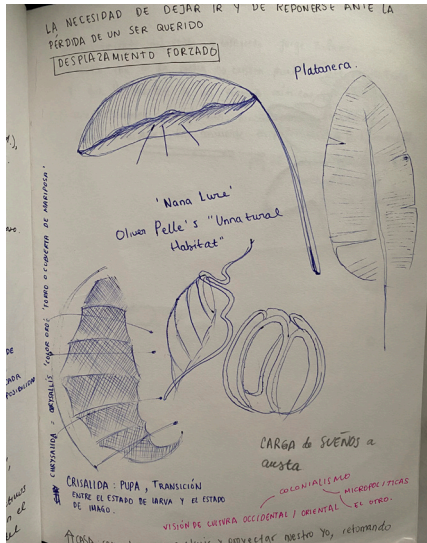 LA NECESIDAD DE DEJAR IR Y DE REPONERSE ANTE LA
PÉRDIDA DE UN SER QUERIDO
DESPLAZAMIENTO FORZADO
Platanera.
'Nana Lure'
Oliver Pelle's "Unnatural
Habitat"
CHRYSALIDA = CHRYSALLIS 'COLOR ORO: 'FORRO O CUBIERTA DE MARIPOSA'
DE
CADA
POSESION
CARGA de SUEÑOS a
cuesta
CRISALIDA: PUPA, TRANSICIÓN
ENTRE EL ESTADO DE LARVA Y EL ESTADO
DE IMAGO.
COLONIALISMO
MICROPOLITICAS
EL OTRO.
VISIÓN DE CULTURA OCCIDENTAL / ORIENTAL
CASA
y proyectar nuestro Yo, retomando